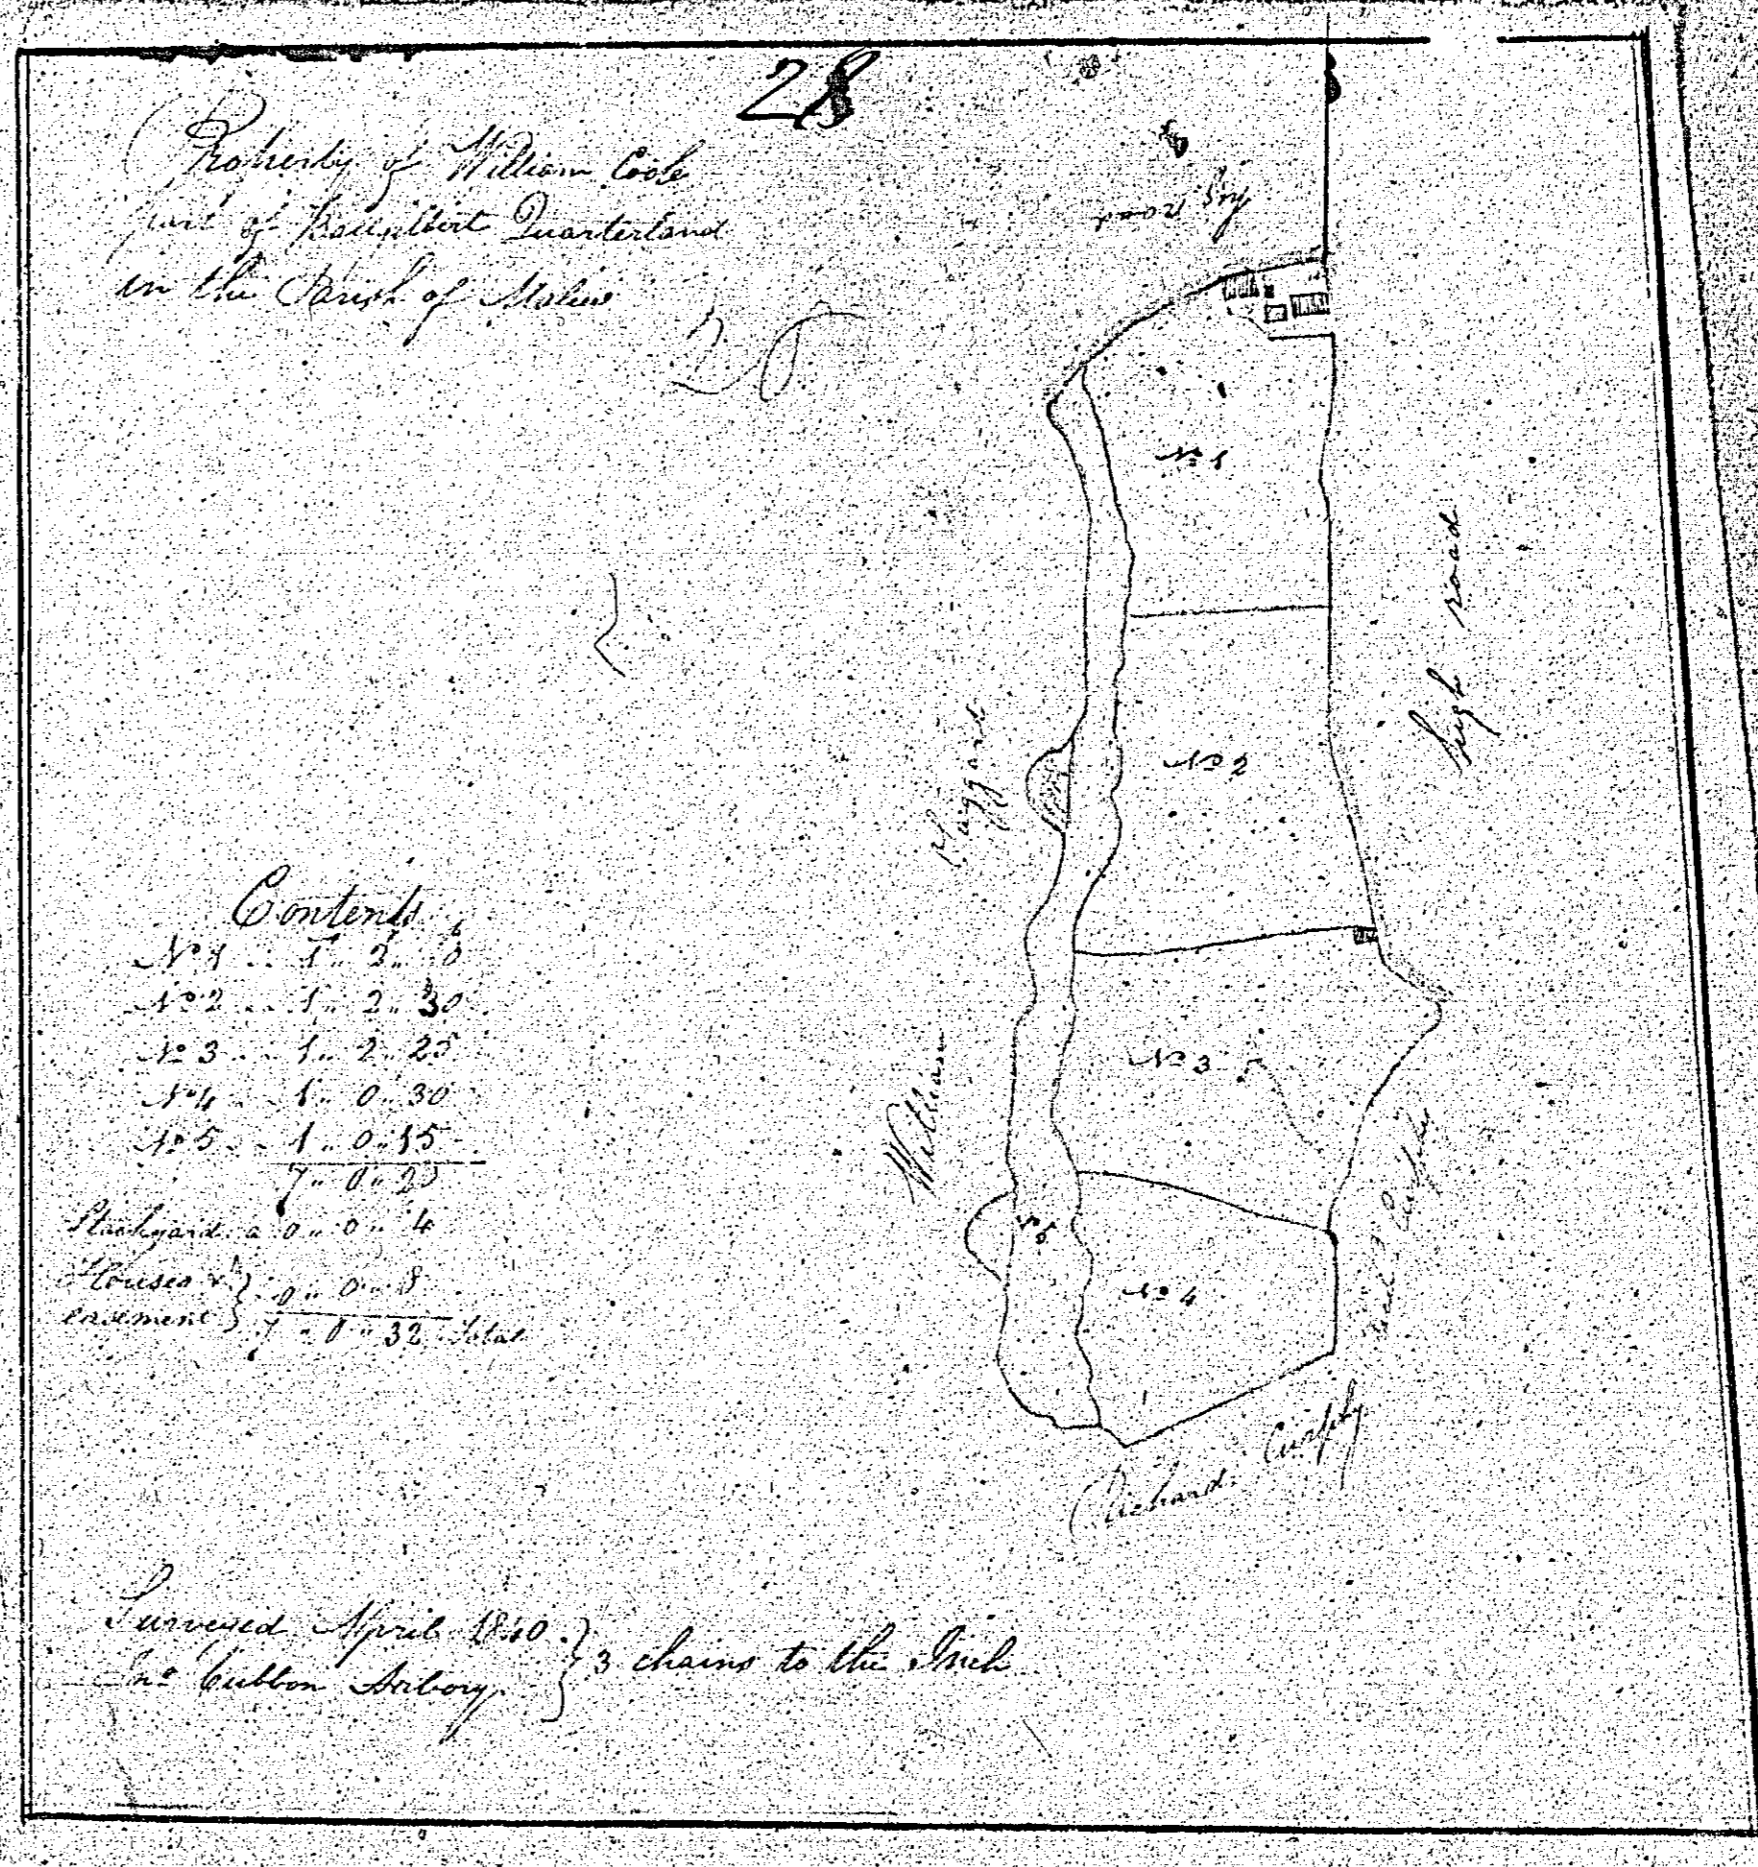 28
Property of William Cools
part of Quarterland
in the Parish of Malew
28
high road
No 1
high road
No 2
William Haggard
No 3
No 5
No 4
Richard Curphy
Contents
No 1 .. 1 .. 2 .. 0
No 2 .. 1 .. 2 .. 30
No 3 .. 1 .. 2 .. 25
No 4 .. 1 .. 0 .. 30
No 5 .. 1 .. 0 .. 15
7 .. 0 .. 20
Stackyard a 0 .. 0 .. 4
Houses &
easement } 0 .. 0 .. 8
7 .. 0 .. 32 Total
Surveyed April 1840
Jno Cubbon Arbory } 3 chains to the Inch